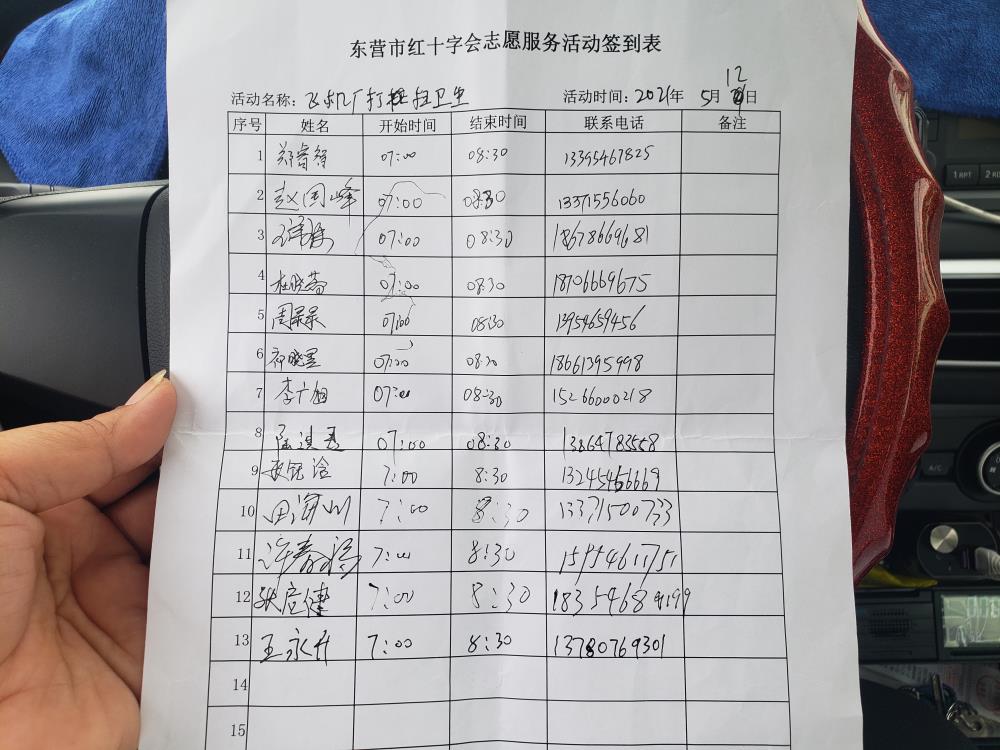 东营市红十字会志愿服务活动签到表
活动名称: 飞机厂打扫卫生 活动时间: 2021年 5月 12日
序号 姓名 开始时间 结束时间 联系电话 备注
1 郑睿智 07:00 08:30 13395467825
2 赵国峰 07:00 08:30 13371556060
3 07:00 08:30 18678669681
4 杜晓蕾 07:00 08:30 18706669675
5 周杲杲 07:00 08:30 13954659456
6 祁晓星 07:00 08:30 18661395998
7 李广旭 07:00 08:30 15266000218
8 07:00 08:30 13864783558
9 7:00 8:30
10 田海川 7:00 8:30 13371500733
11 许春 7:00 8:30 15954611751
12 7:00 8:30
13 王永升 7:00 8:30 13780769301
14
15
1 RPT
2 RD
A/C